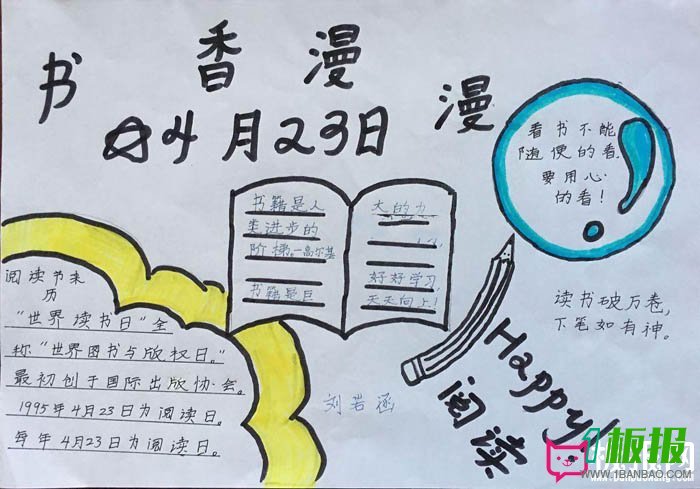 书香漫漫
☆4月23日
看书不能
随便的看,
要用心
的看!
书籍是人
类进步的
阶梯。—高尔基
书籍是巨
大的力
好好学习,
天天向上!
阅读书来
历
“世界读书日”全
称“世界图书与版权日。”
最初创于国际出版协会。
1995年4月23日为阅读日。
每年4月23日为阅读日。
读书破万卷,
下笔如有神。
Happy!
阅读
刘若涵
1板报
WWW.1BANBAO.COM